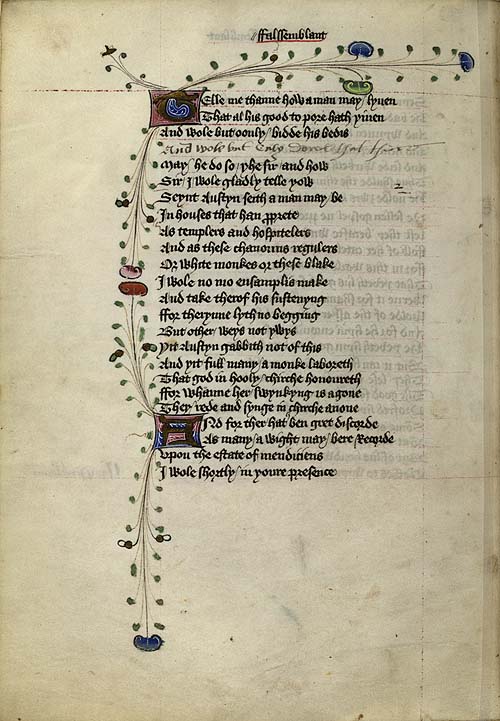 ffals Semblant
Telle me thanne how a man may lyuen
That al his good to pore hath yiuen
And wole but oonly bidde his bedis
And wole but only
May he do so yhe sir and how
Sir I wole gladly telle yow
Seynt Austyn seith a man may be
In houses that han pprete
As templers and hospitelers
And as these chanouns regulers
Or white monkes or these blake
I wole no mo ensamplis make
And take therof his sustenyng
ffor therynne lyth no begging
But other weys not ywys
Yit Austyn gabbith not of this
And yit full many a monke laboreth
That god in hooly chirche honoureth
ffor whanne her swynkyng is agone
They rede and synge in chirche anone
And for ther hat ben gret discorde
As many a wight may bere Recorde
vpon the estate of mendiciens
I wole shortly in youre presence